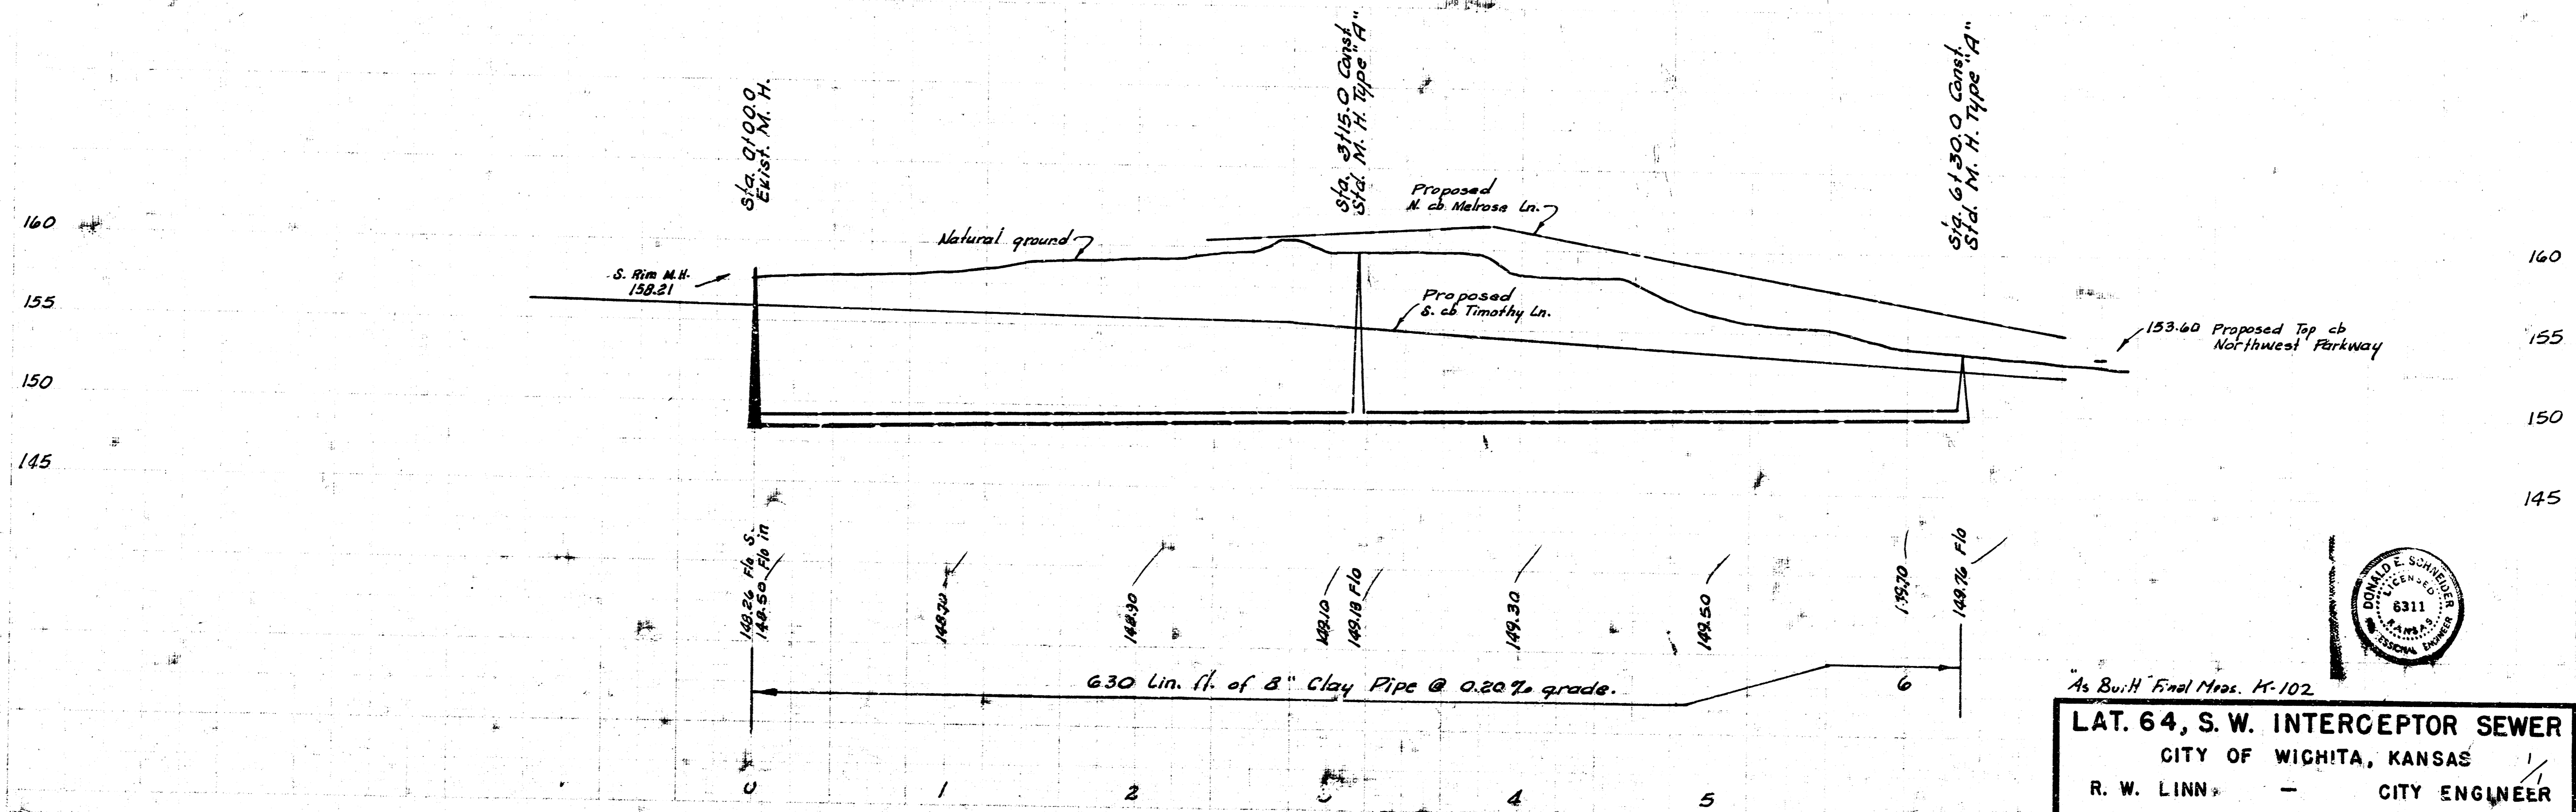 Sta. 0+00.0
Exist. M. H.
Sta. 3+15.0 Const.
Std. M. H. Type "A"
Sta. 6+30.0 Const.
Std. M. H. Type "A"
Proposed
N. cb Melrose Ln.
Natural ground
S. Rim M.H.
158.21
Proposed
S. cb Timothy Ln.
153.60 Proposed Top cb
Northwest Parkway
160
155
150
145
160
155
150
145
148.26 Flo S.
148.50 Flo in
148.70
148.90
149.10
149.18 Flo
149.30
149.50
139.70
149.76 Flo
630 Lin. ft. of 8" Clay Pipe @ 0.20% grade.
6
0
1
2
4
5
DONALD E. SCHNEIDER
LICENSED
6311
KANSAS
PROFESSIONAL ENGINEER
"As Built" Final Meas. K-102
LAT. 64, S. W. INTERCEPTOR SEWER
CITY OF WICHITA, KANSAS
1/1
R. W. LINN - CITY ENGINEER